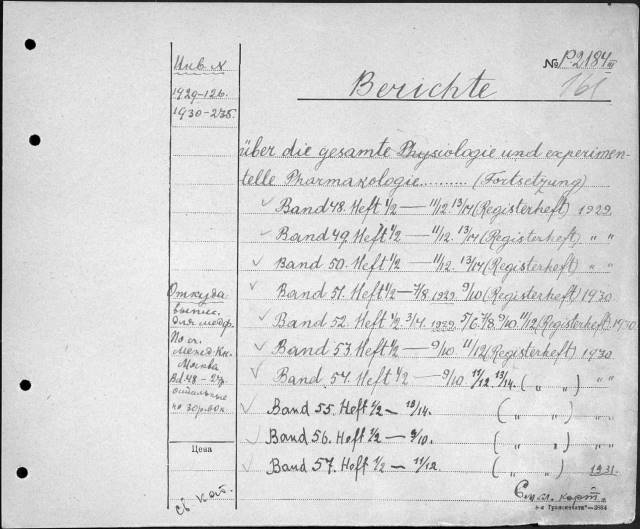 Инв. №
1929-126.
1930-275.
№ P.2184 III
161
Berichte
über die gesamte Physiologie und experimen-
telle Pharmakologie.......... (Fortsetzung)
Band 48. Heft 1/2 — 11/12. 13/14 (Registerheft) 1929.
Band 49. Heft 1/2 — 11/12. 13/14 (Registerheft) " "
Band 50. Heft 1/2 — 11/12. 13/14 (Registerheft) " "
Band 51. Heft 1/2 — 7/8. 1929. 9/10 (Registerheft) 1930.
Band 52. Heft 1/2. 3/4. 1929. 5/6. 7/8. 9/10. 11/12 (Registerheft) 1930
Band 53. Heft 1/2 — 9/10 11/12 (Registerheft) 1930.
Band 54. Heft 1/2 — 9/10 11/12. 13/14. ( " " ) " "
Band 55. Heft 1/2 — 13/14. ( " " )
Band 56. Heft 1/2 — 9/10. ( " " )
Band 57. Heft 1/2 — 11/12. ( " " ) 1931.
Откуда
выпис.
для
По сч.
Межд. Кн.
Москва
Bd. 48 - 27р.
остальные
по 30р. 60к.
Цена
См. кат.
См. сл. карт.